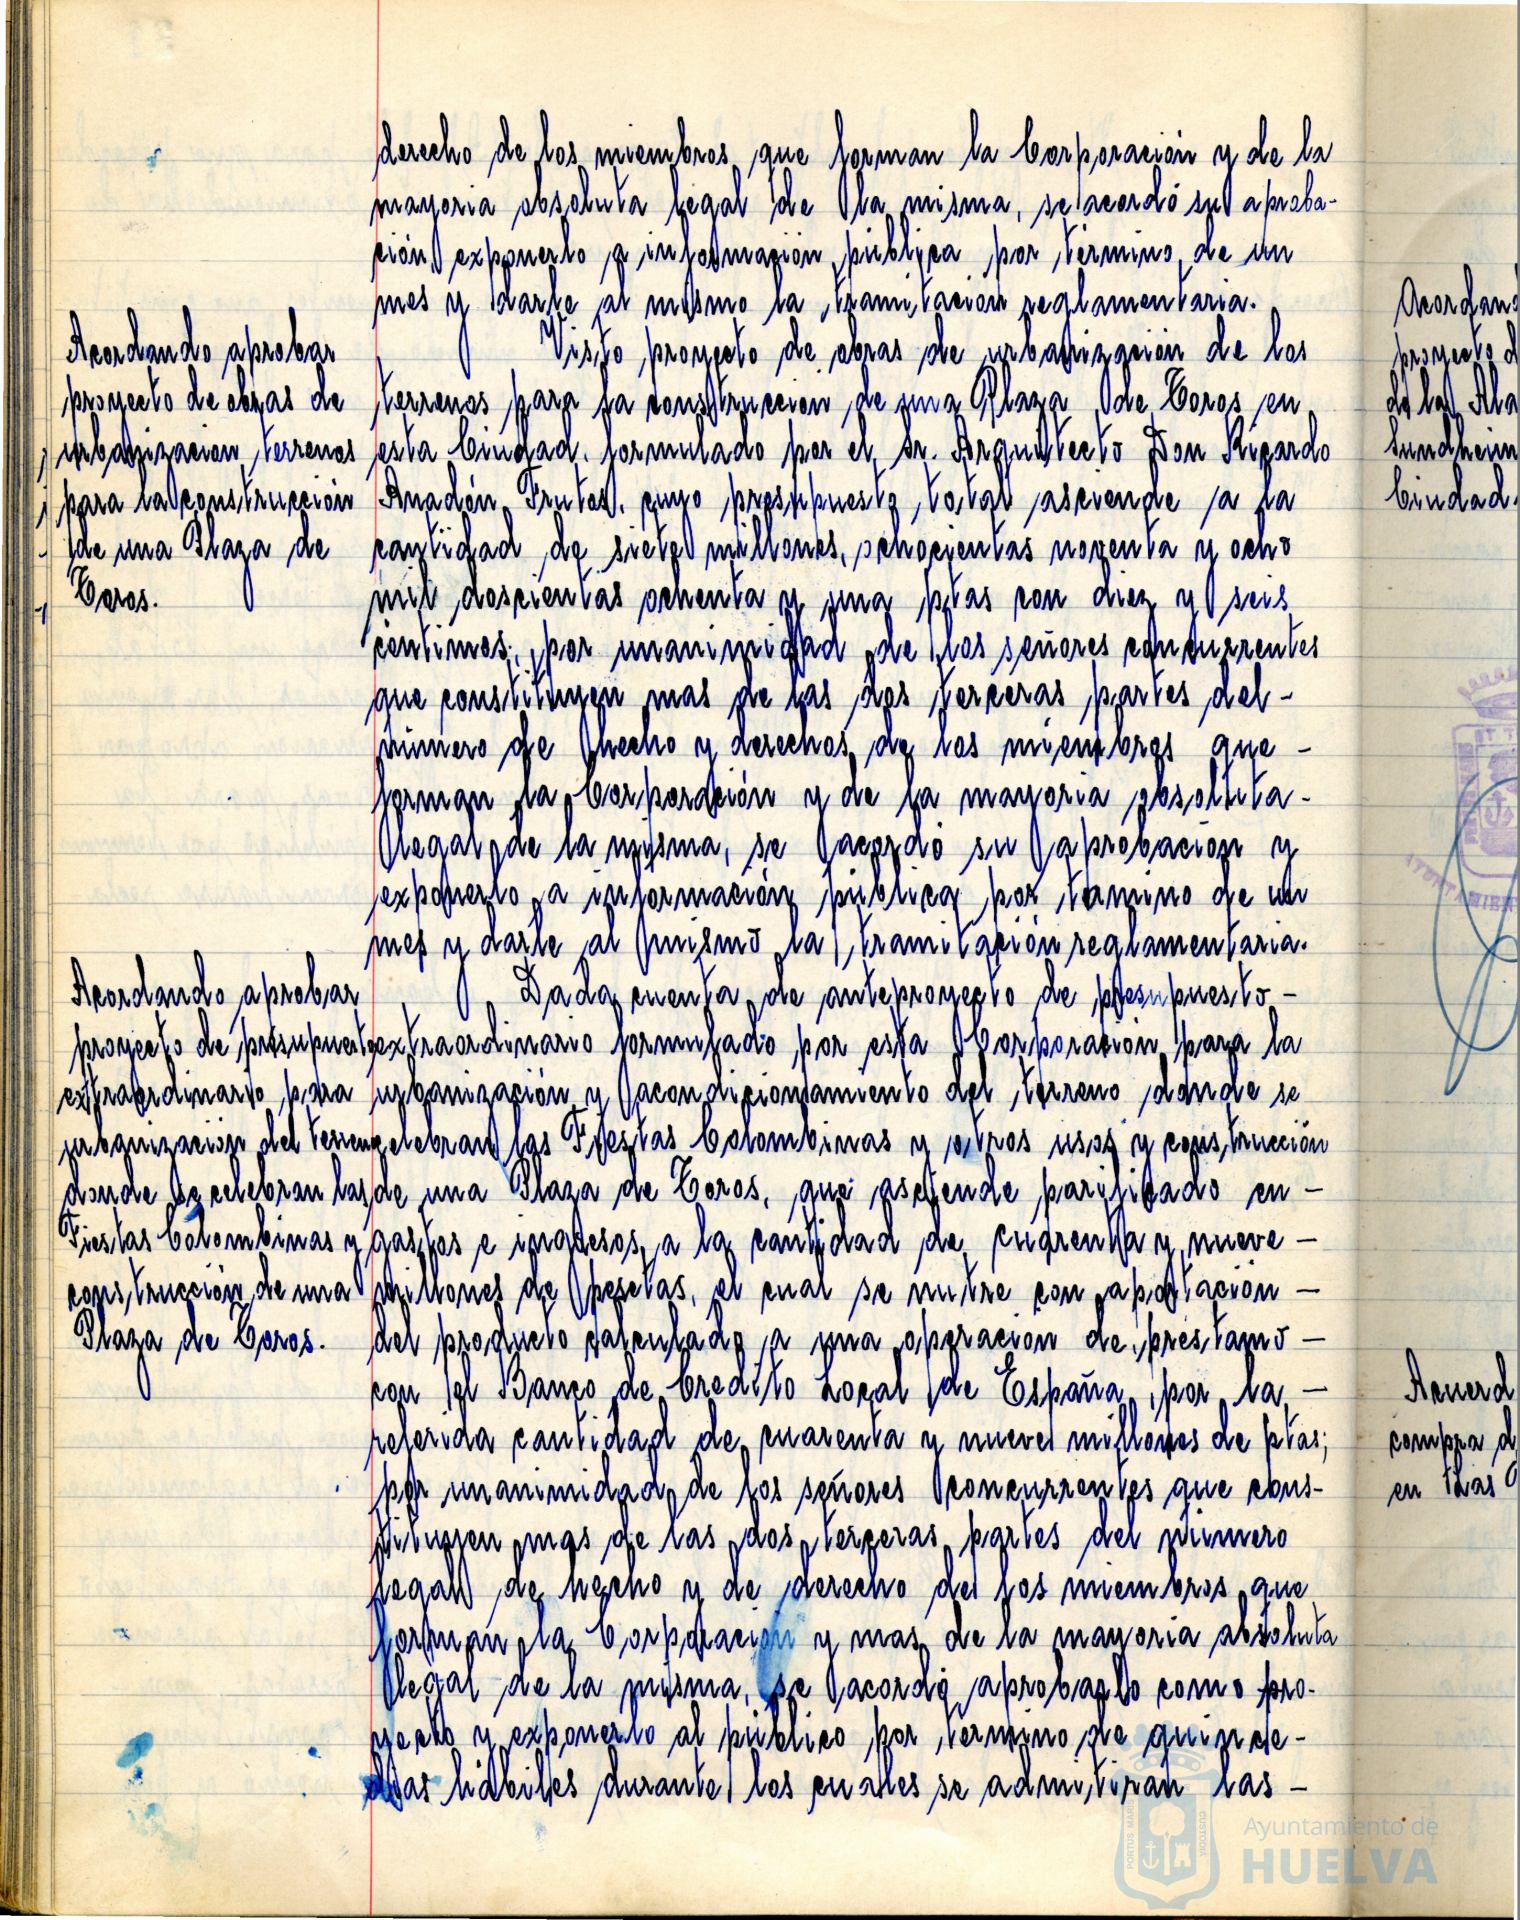 derecho de los miembros que forman la Corporación y de la
mayoria absoluta legal de la misma, se acordó su aproba-
ción, exponerlo a información pública por término de un
mes y darle al mismo la tramitación reglamentaria.
Acordando aprobar
proyecto de obras de
urbanizacion terrenos
para la construcción
de una Plaza de
Toros.
Visto proyecto de obras de urbanización de los
terrenos para la construccion de una Plaza de Toros en
esta Ciudad, formulado por el Sr. Arquitecto Don Ricardo
Anadón Frutos, cuyo presupuesto total asciende a la
cantidad de siete millones, ochocientas noventa y ocho
mil doscientas ochenta y una ptas con diez y seis
centimos; por unanimidad de los señores concurrentes
que constituyen mas de las dos terceras partes del -
número de hecho y derechos de los miembros que -
forman la Corporación y de la mayoria absoluta -
legal de la misma, se acordó su aprobación y
exponerlo a información pública por termino de un
mes y darle al mismo la tramitación reglamentaria.
Acordando aprobar
proyecto de presupuesto
extraordinario para
urbanización del terreno
donde se celebran las
Fiestas Colombinas y
construcción de una
Plaza de Toros.
Dada cuenta de anteproyecto de presupuesto -
extraordinario formulado por esta Corporación para la
urbanización y acondicionamiento del terreno donde se
celebran las Fiestas Colombinas y otros usos y construcción
de una Plaza de Toros, que asciende parificado en -
gastos e ingresos a la cantidad de cuarenta y nueve -
millones de pesetas, el cual se nutre con aportación -
del producto calculado a una operación de préstamo -
con el Banco de Credito Local de España, por la -
referida cantidad de cuarenta y nueve millones de ptas;
por unanimidad de los señores concurrentes que cons-
tituyen mas de las dos terceras partes del número
legal de hecho y de derecho de los miembros que
forman la Corporación y mas de la mayoria absoluta
legal de la misma, se acordó aprobarlo como pro-
yecto y exponerlo al público por termino de quince -
dias hábiles durante los cuales se admitirán las -
Acordand
proyecto d
de la Ala
Sundheim
Ciudad.
Acuerd
compra d
en las
Ayuntamiento de
HUELVA